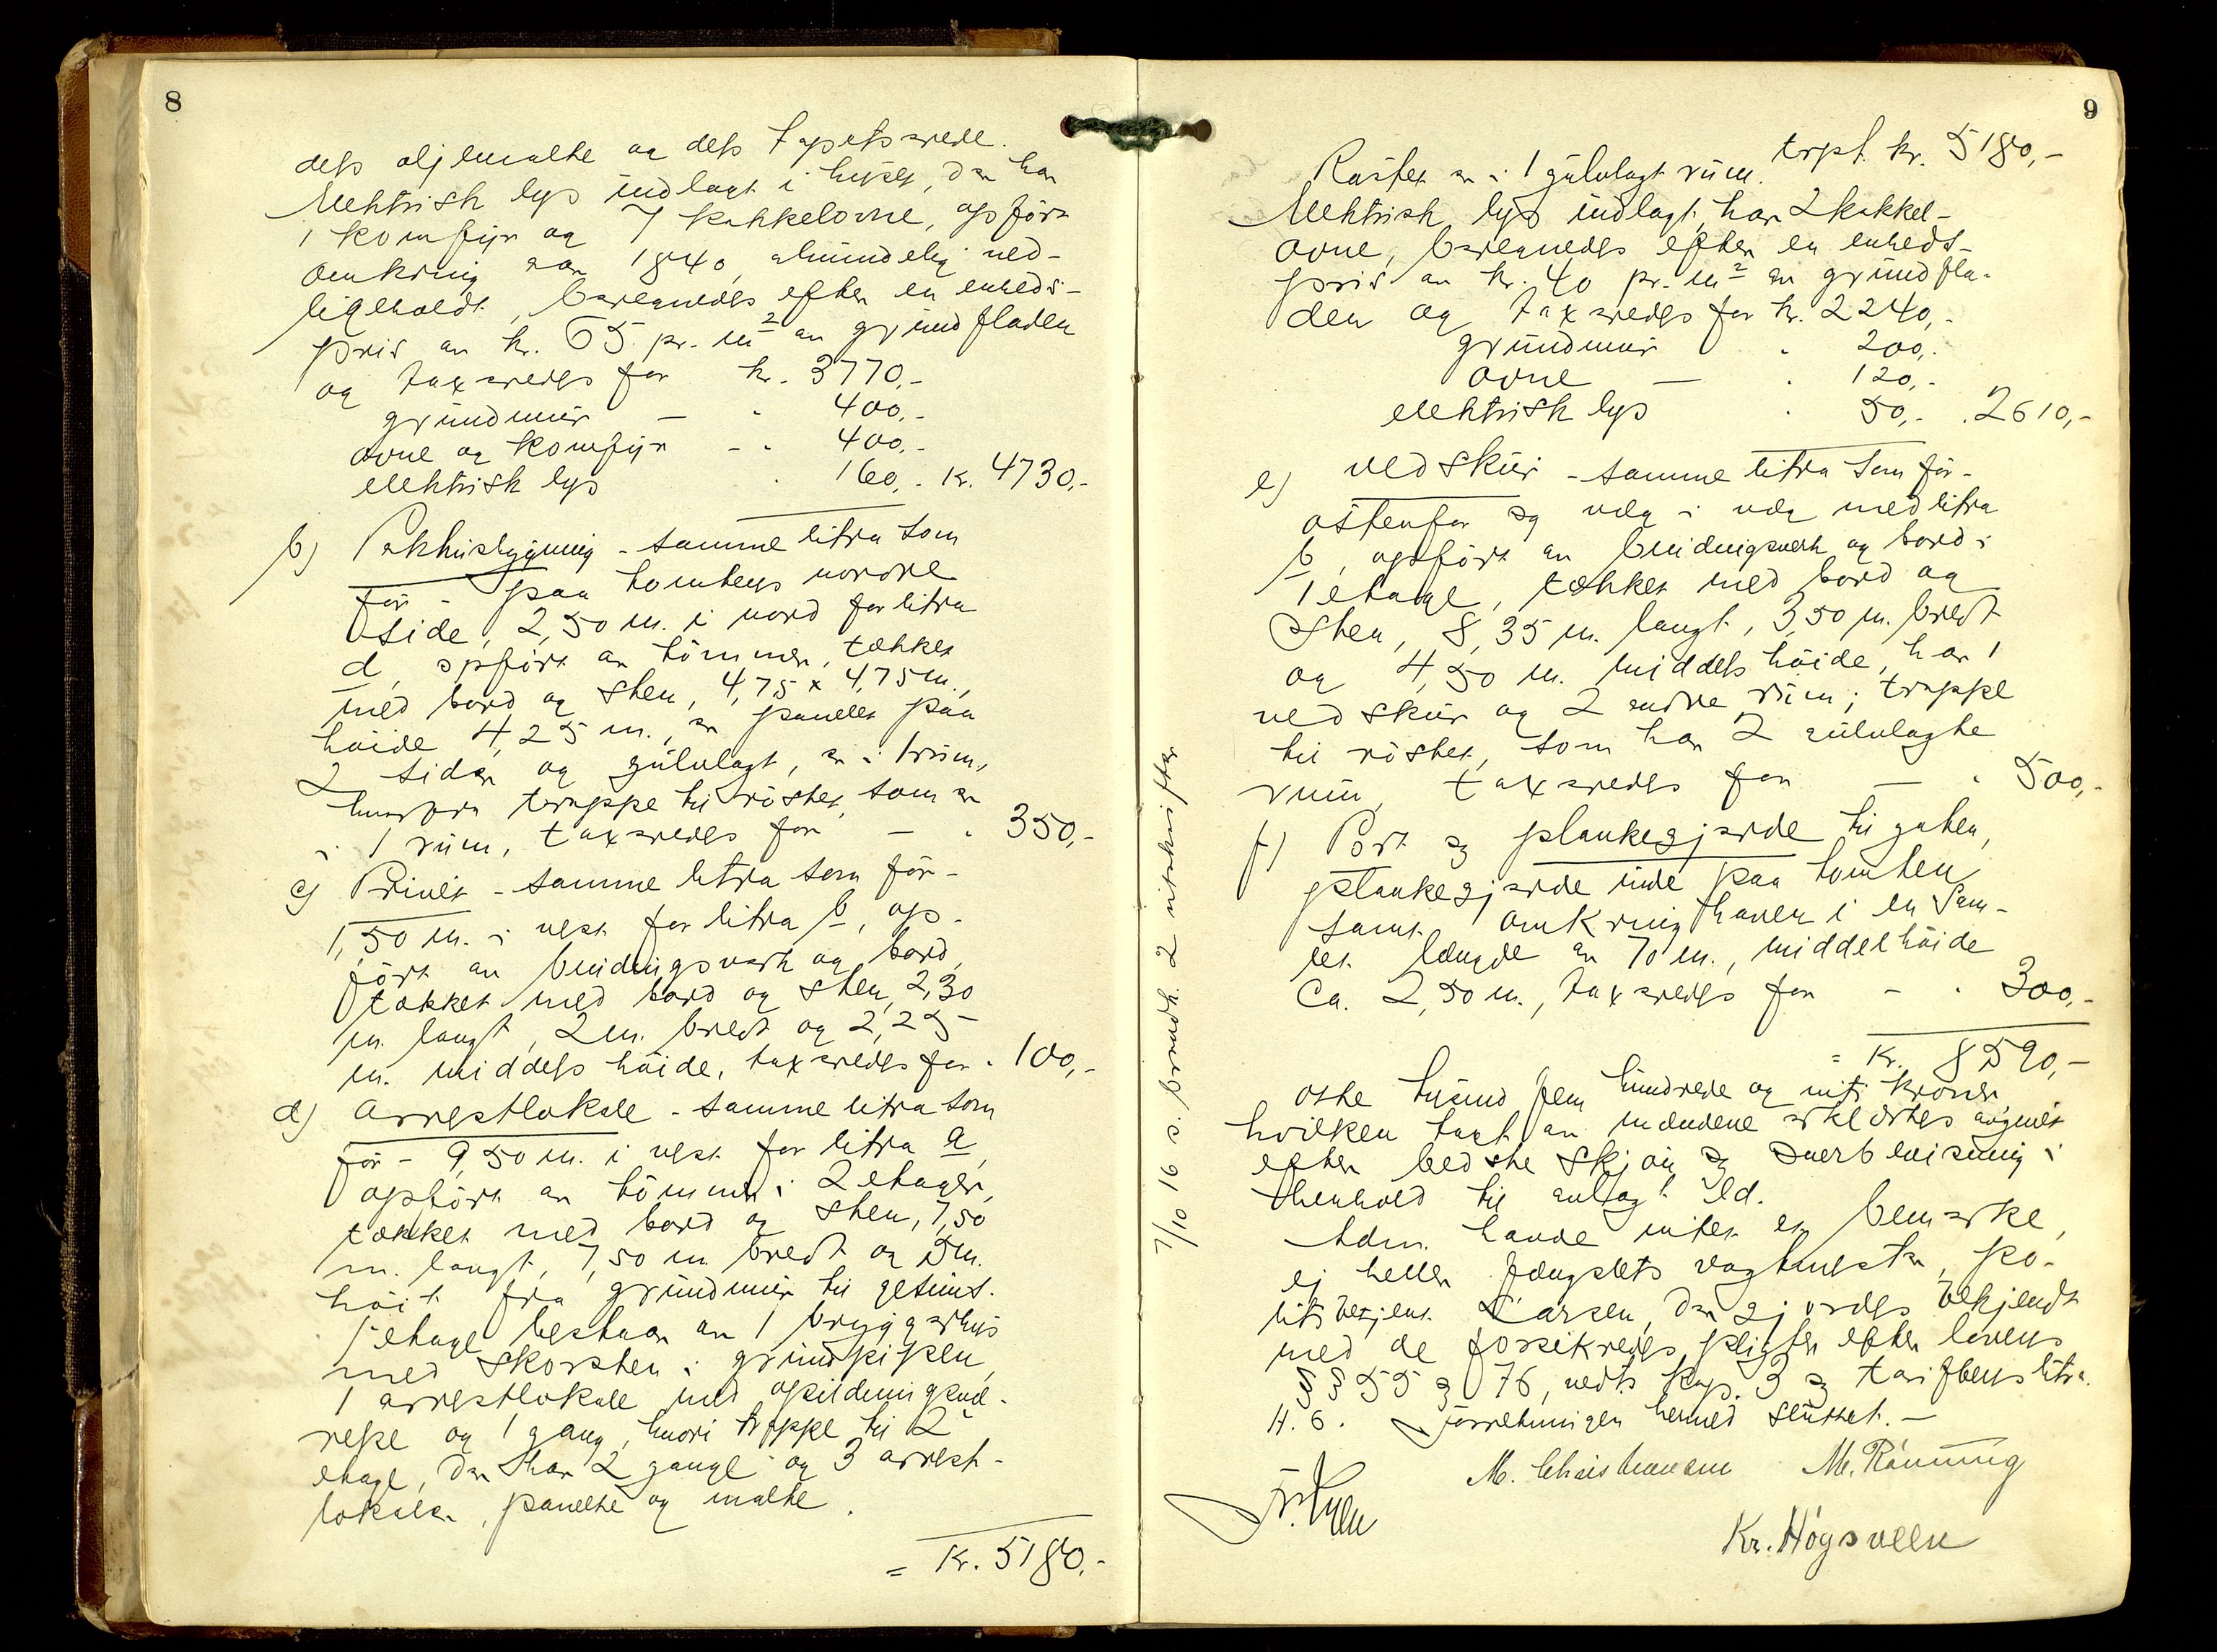 8
dels oljemalte og dels tapetserede.
Elektrisk lys indlagt i huset, der har
1 komfyr og 7 kakkelovne, opført
omkring aar 1840, almindelig ved-
ligeholdt, beregnedes efter en enheds-
pris av kr. 65 pr. m² av grundfladen
og taxeredes for kr. 3770,-
grundmur — " 400,-
ovne og komfyr - " 400,-
elektrisk lys " 160,- kr. 4730,-
b) Pakhusbygning - samme litra som
før - paa tomtens nordre
side, 2,50 m. i nord for litra
d, opført av tømmer, tækket
med bord og sten, 4,75 x 4,75 m.,
høide 4,25 m., er panelet paa
2 sider og gulvlagt, er i 1 rum,
hvorfra trappe til røstet, som er
i 1 rum, taxeredes for — " 350,-
c) Privet - samme litra som før -
1,50 m. i vest for litra b, op-
ført av bindingsverk og bord,
tækket med bord og sten, 2,30
m. langt, 2 m. bredt og 2,25
m. middels høide, taxeredes for " 100,-
d) Arrestlokale - samme litra som
før - 9,50 m. i vest for litra a,
opført av tømmer i 2 etager,
tækket med bord og sten, 7,50
m. langt, 7,50 m. bredt og 5 m.
høit fra grundmur til gesims.
1 etage bestaar av 1 bryggerhus
med skorsten i grundpipen,
1 arrestlokale med opildningsind-
retn og 1 gang, hvori trappe til 2
etage, der har 2 gange og 3 arrest-
lokaler, panelte og malte.
= Kr. 5180,-
9
trpt. kr. 5180,-
Røstet er i 1 gulvlagt rum.
Elektrisk lys indlagt, har 2 kakkel-
ovne, beregnedes efter en enheds-
pris av kr. 40 pr. m² av grundfla-
den og taxeredes for kr. 2240,-
grundmur " 200,-
ovne — " 120,-
elektrisk lys " 50,- " 2610,-
e) Vedskur - samme litra som før -
østenfor og væg i væg med litra
b, opført av bindingsverk og bord i
1 etage, tækket med bord og
sten, 8,35 m. langt, 3,50 m. bredt
og 4,50 m. middels høide, har 1
vedskur og 2 andre rum; trappe
til røstet, som har 2 gulvlagte
rum, taxeredes for — " 500,-
f) Port og plankegjerde til gaten,
plankegjerde inde paa tomten
samt omkring haven i en sam-
let længde av 70 m., middelhøide
ca. 2,50 m., taxeredes for - " 300,-
= Kr. 8590,-
otte tusind fem hundrede og nitti kroner,
hvilken taxt av mændene erklærtes avgivet
efter bedste skjøn og overbevisning i
henhold til avlagt ed.
Adm. havde intet at bemerke,
ej heller fængslets vagtmester, po-
litibetjent Larsen, der gjordes bekjendt
med de forsikredes pligter efter lovens
§§ 55 og 76, vedt. kap. 3 og tariffens litra
H. 6. Forretningen hermed sluttet. —
M. Christiansen M. Rønning
Kr. Høgsveen
7/10 16 s. brandk. 2 utskrifter